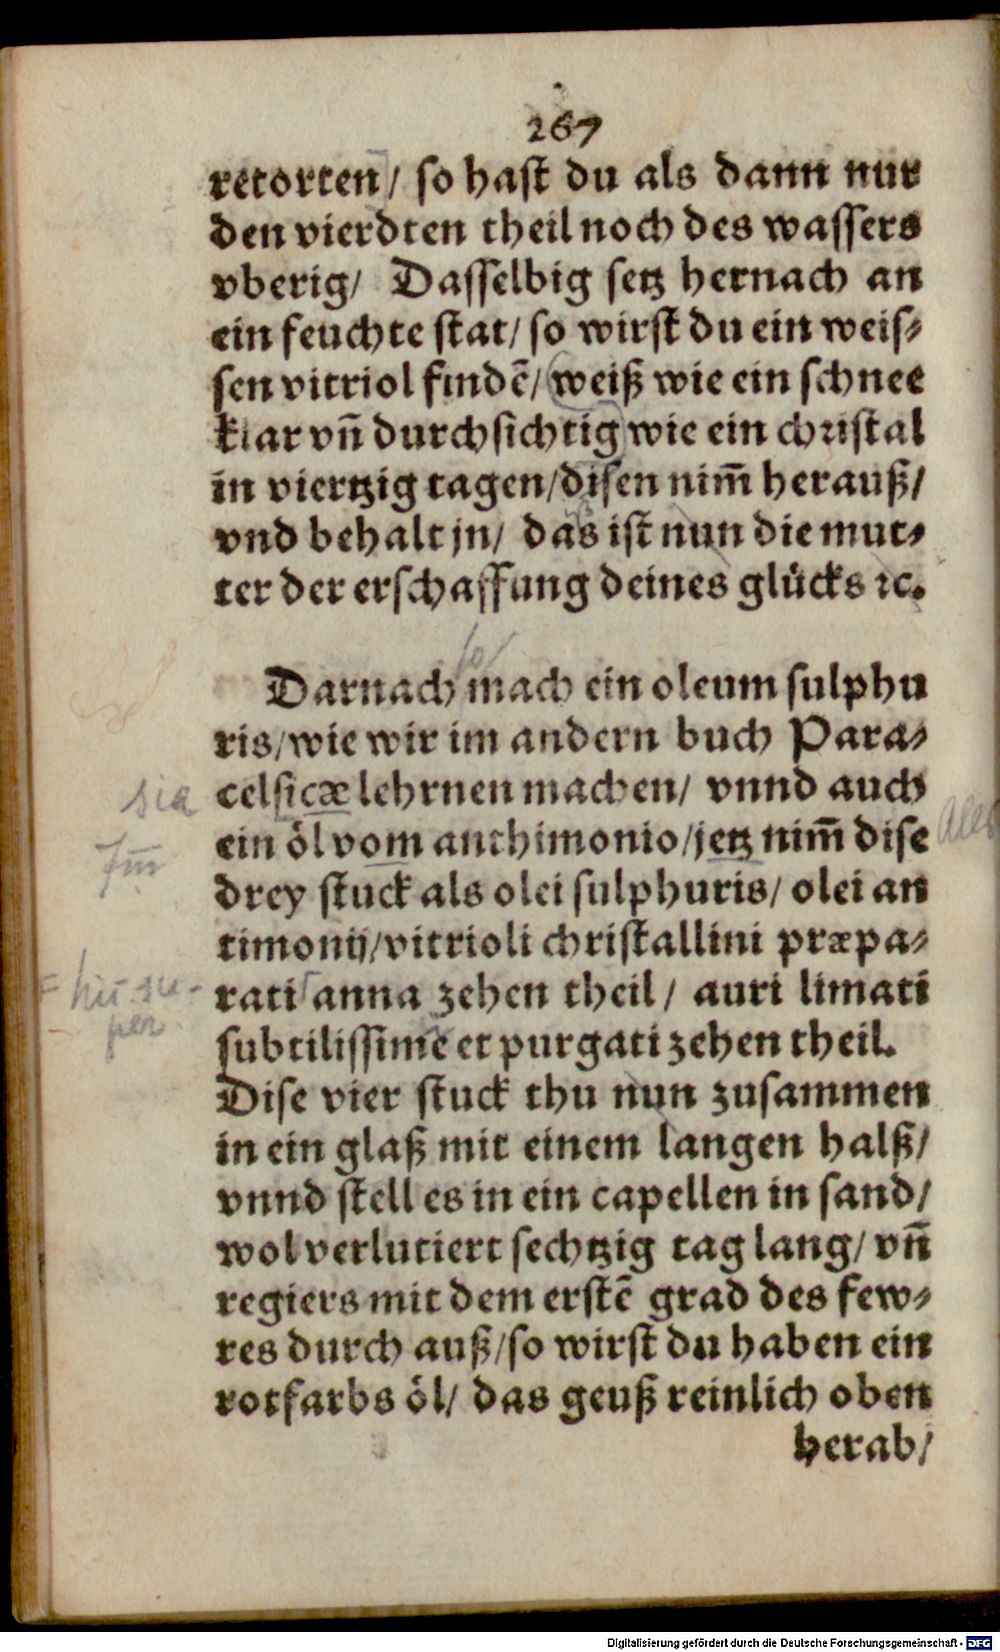 267
retorten/ so hast du als dann nur
den vierdten theil noch des wassers
vberig/ Dasselbig setz hernach an
ein feuchte stat/ so wirst du ein weis⸗
sen vitriol findē/ weiß wie ein schnee
klar vn̄ durchsichtig wie ein christal
in viertzig tagen/ disen nim̄ herauß/
vnd behalt jn/ das ist nun die mut⸗
ter der erschaffung deines glücks ꝛc.
Darnach mach ein oleum sulphu
ris/ wie wir im andern buch Para⸗
celsicæ lehrnen machen/ vnnd auch
ein öl vom anthimonio/ jetz nim̄ dise
drey stuck als olei sulphuris/ olei an
timonij/ vitrioli christallini præpa⸗
rati anna zehen theil/ auri limati
subtilissime et purgati zehen theil.
Dise vier stuck thu nun zusammen
in ein glaß mit einem langen halß/
vnnd stell es in ein capellen in sand/
wol verlutiert sechtzig tag lang/ vn̄
regiers mit dem erstē grad des few⸗
res durch auß/ so wirst du haben ein
rotfarbs öl/ das geuß reinlich oben
herab/
sia
Digitalisierung gefördert durch die Deutsche Forschungsgemeinschaft - DFG